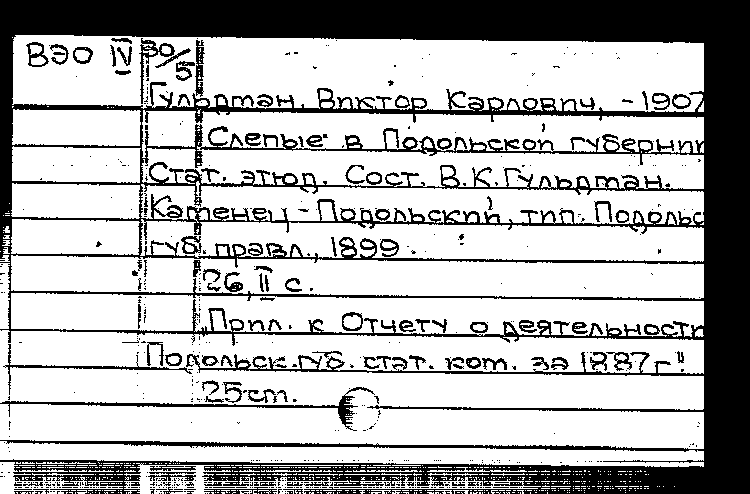 ВЭО IV 30/5
Гульдман, Виктор Карлович, - 1907
Слепые в Подольской губернии
Стат. этюд. Сост. В.К.Гульдман.
Каменец-Подольский, тип. Подольс
губ. правл., 1899.
26, II с.
„Прил. к Отчету о деятельности
Подольск.губ. стат. ком. за 1887г."
25см.